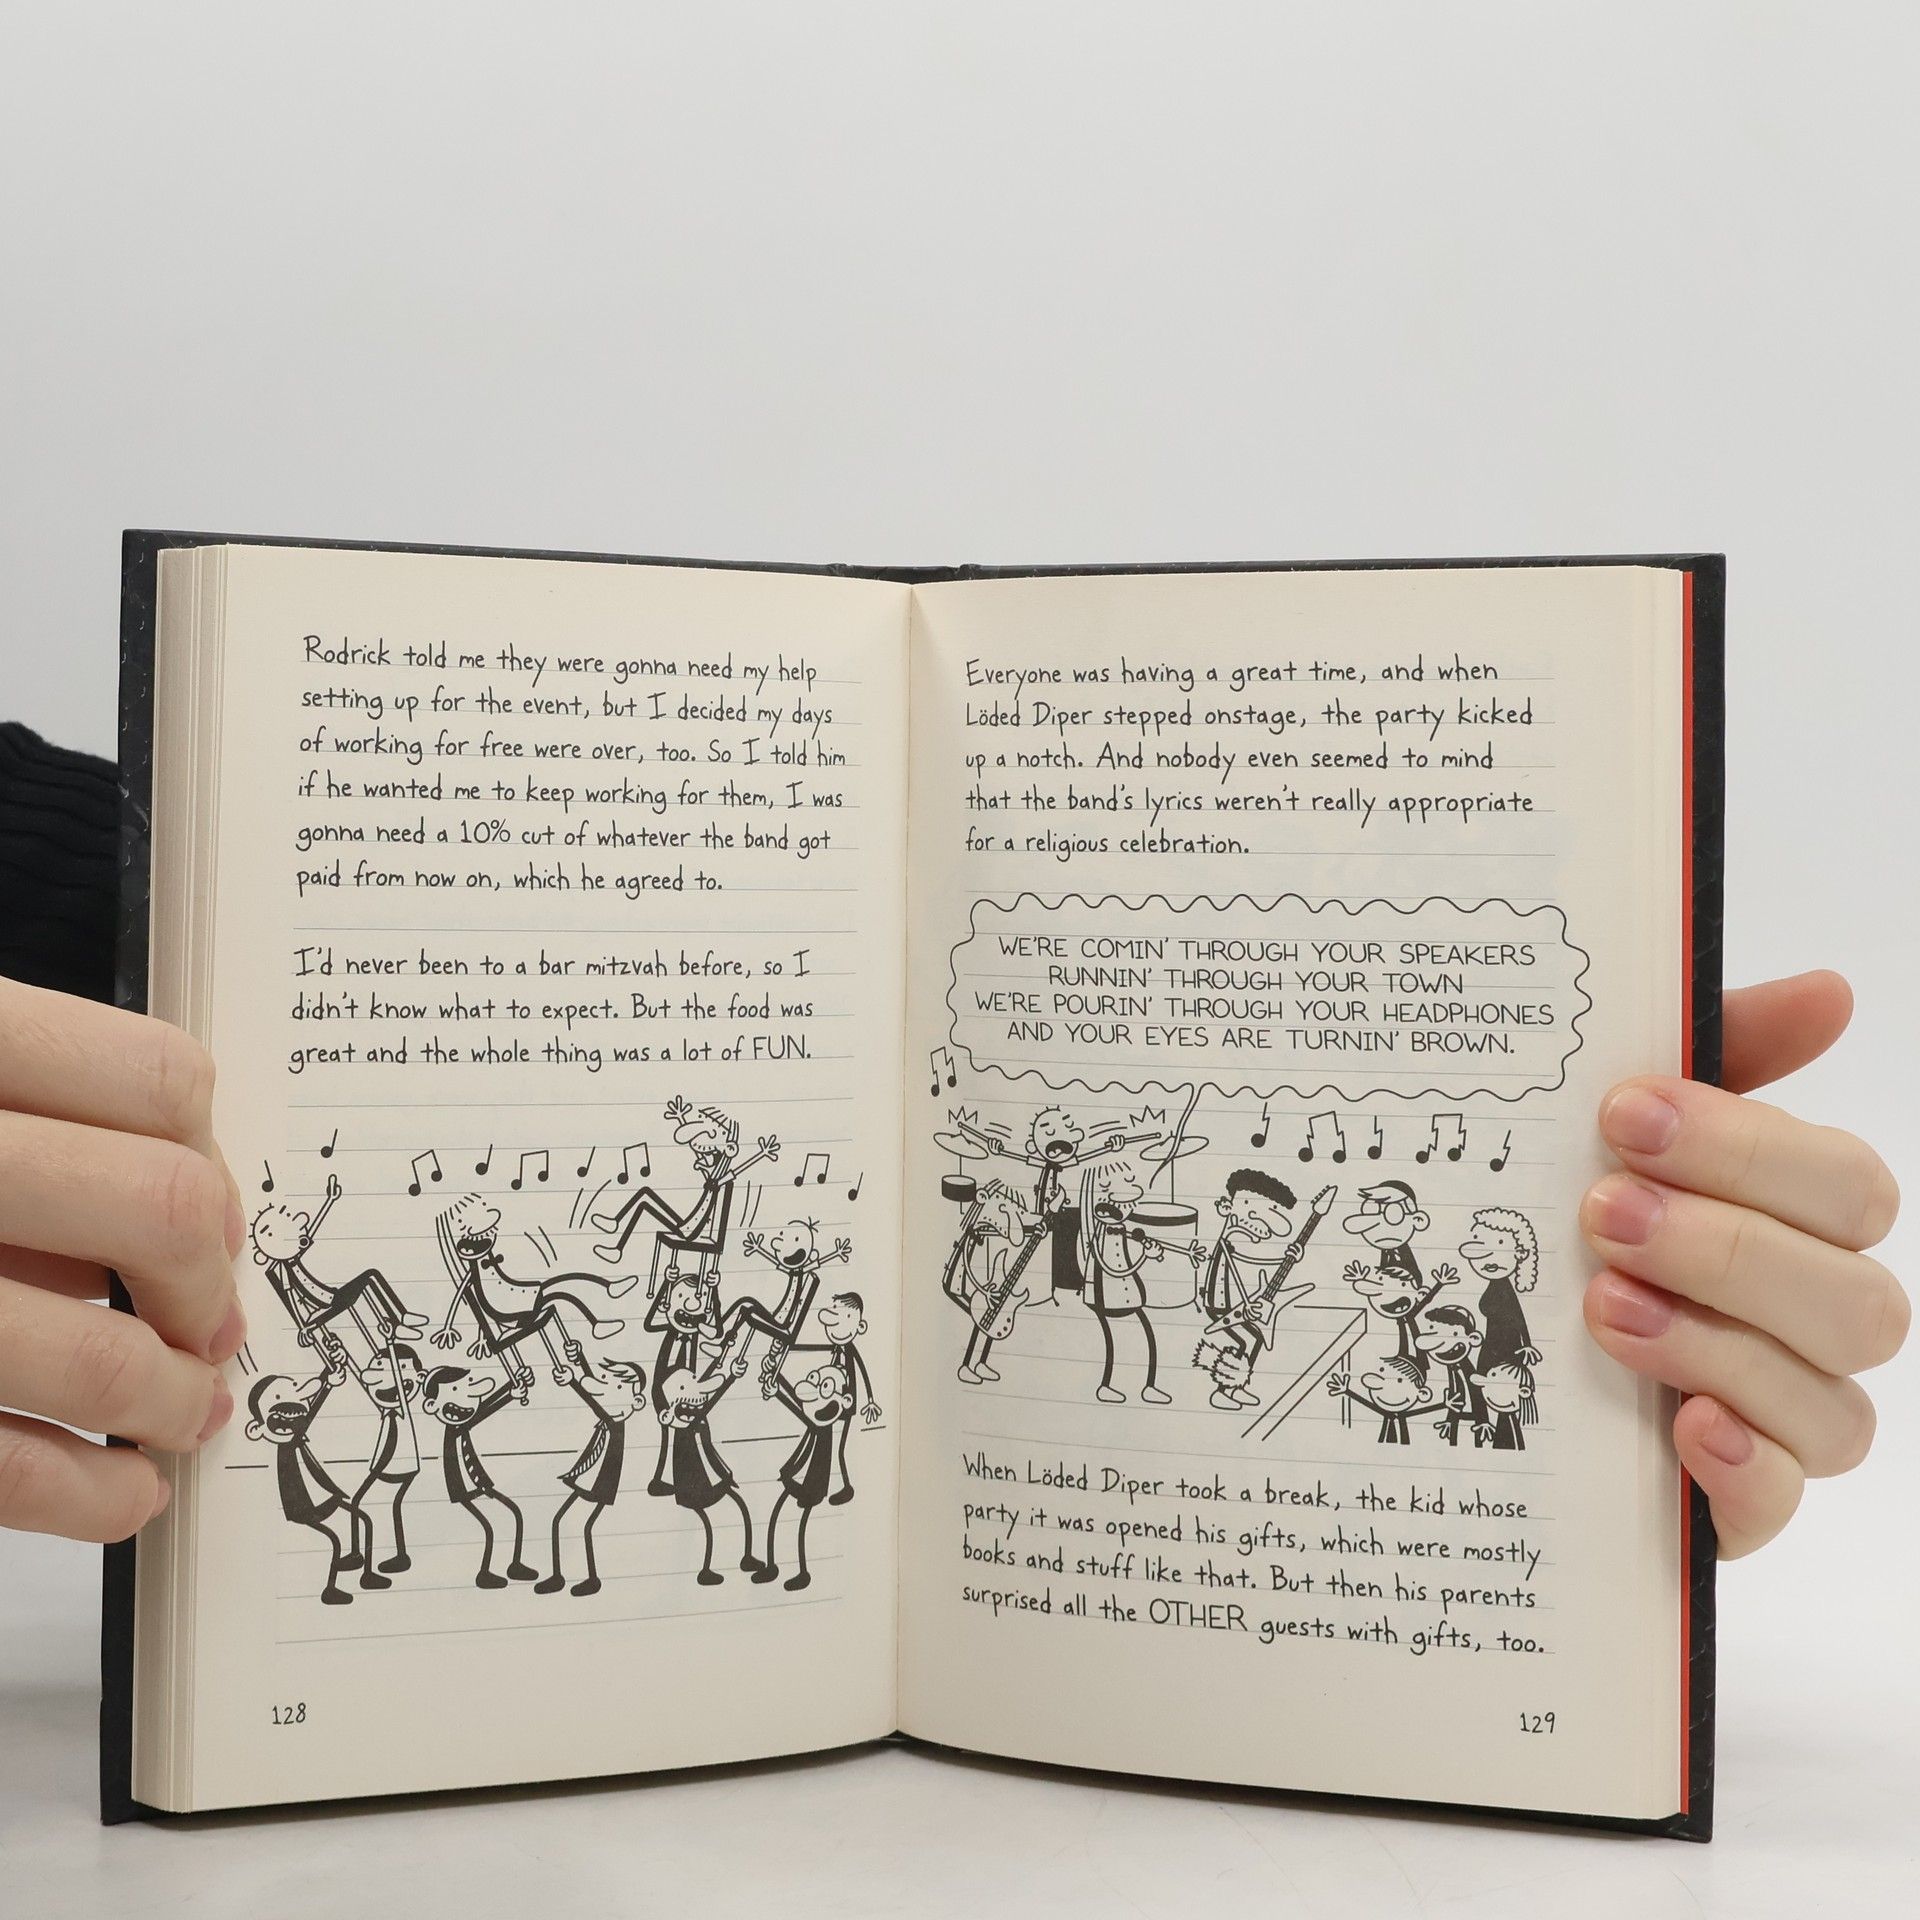 Rodrick told me they were gonna need my help
setting up for the event, but I decided my days
of working for free were over, too. So I told him
if he wanted me to keep working for them, I was
gonna need a 10% cut of whatever the band got
paid from now on, which he agreed to.
I'd never been to a bar mitzvah before, so I
didn't know what to expect. But the food was
great and the whole thing was a lot of FUN.
128
Everyone was having a great time, and when
Löded Diper stepped onstage, the party kicked
up a notch. And nobody even seemed to mind
that the band's lyrics weren't really appropriate
for a religious celebration.
WE'RE COMIN' THROUGH YOUR SPEAKERS
RUNNIN' THROUGH YOUR TOWN
WE'RE POURIN' THROUGH YOUR HEADPHONES
AND YOUR EYES ARE TURNIN' BROWN.
When Löded Diper took a break, the kid whose
party it was opened his gifts, which were mostly
books and stuff like that. But then his parents
surprised all the OTHER guests with gifts, too.
129